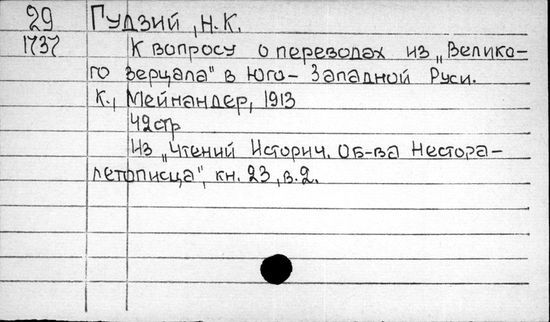 29 Гудзий, Н.К.
1737 К вопросу о переводах из „Велико-
го зерцала" в Юго-Западной Руси.
К., Мейнандер, 1913
42стр
Из „Чтений Историч. Об-ва Нестора-
летописца", кн. 23, в.2.